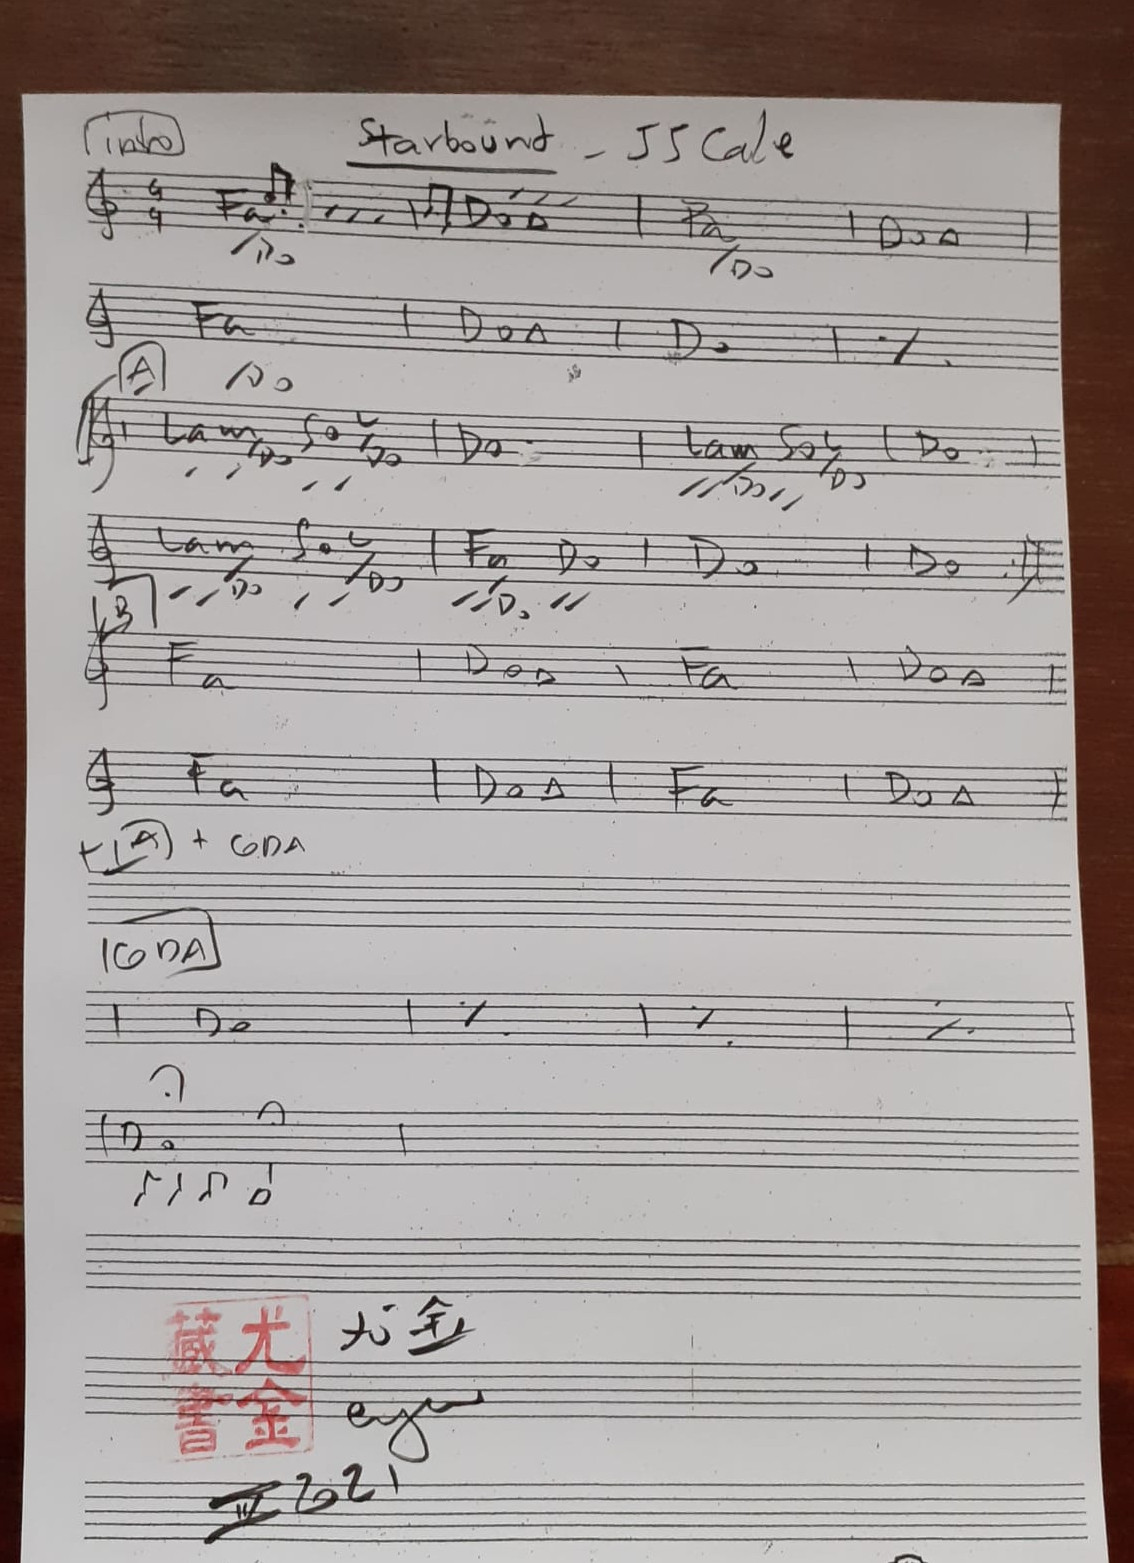 intro Starbound - JJ Cale
4/4 Fa/Do | DoΔ | Fa/Do | DoΔ |
Fa/Do | DoΔ | Do | ٪
A
Lam/Do Sol/Do | Do | Lam/Do Sol/Do | Do |
Lam/Do Sol/Do | Fa/Do Do | Do | Do
B
Fa | DoΔ | Fa | DoΔ |
Fa | DoΔ | Fa | DoΔ |
+ A + CODA
CODA
| Do | ٪ | ٪ | ٪ |
| Do |
尤金
藏書
尤金
2021